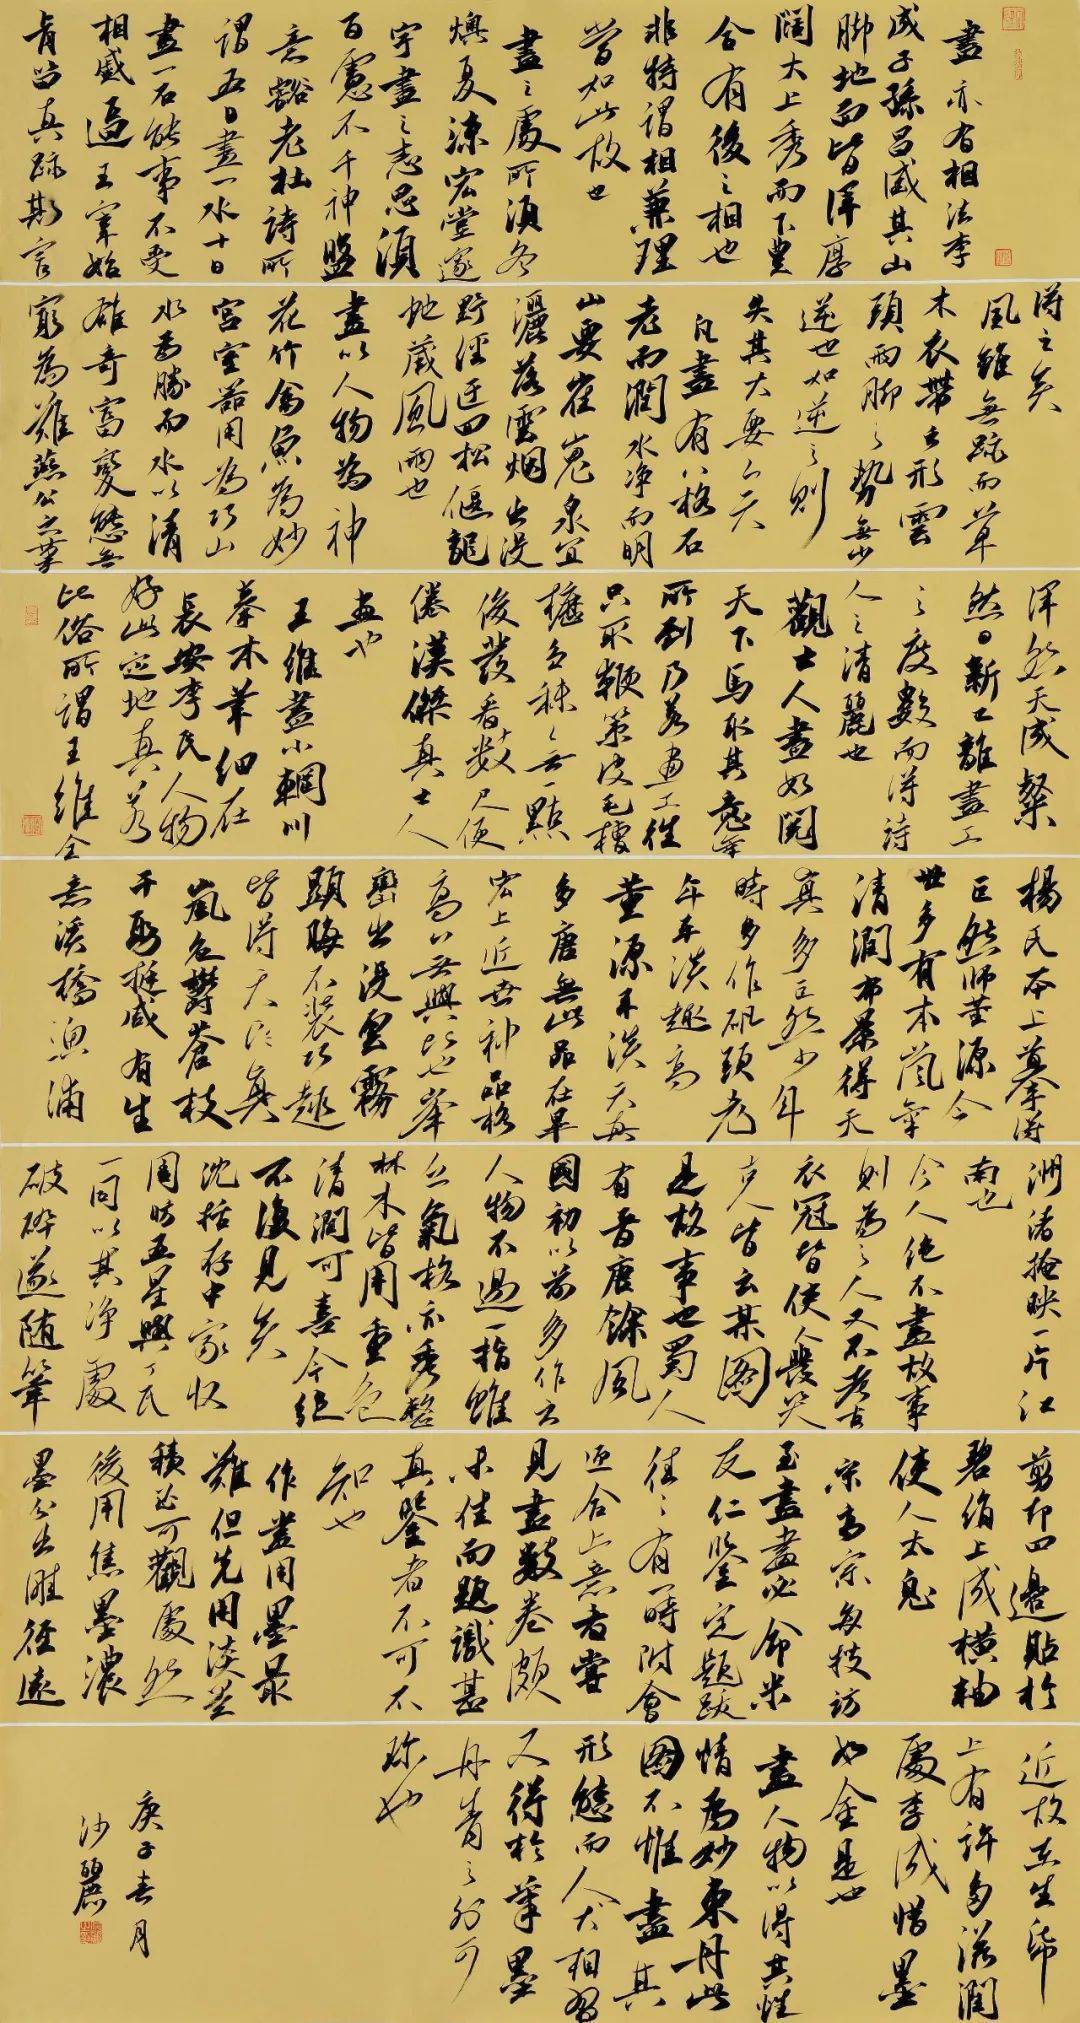 畫亦有相法李
成子孫昌盛其山
脚地面皆渾厚
闊大上秀而下豐
合有後之相也
非特謂相兼理
當如此故也
畫之處所須冬
燠夏涼宏堂邃
宇畫之志思須
百慮不干神盤
意豁老杜詩所
謂五日畫一水十日
畫一石能事不受
相蹙逼王宰始
肯留真跡斯言
得之矣
風雖無跡而草
木衣帶之形雲
頭雨脚之勢無少
逆也如逆之則
失其大要矣
凡畫有八格石
老而潤水淨而明
山要崔嵬泉宜
灑落雲烟出沒
野徑迂回松偃龍
蛇竹藏風雨也
畫以人物為神
花竹禽魚為妙
宮室器用為巧山
水為勝而水以清
雄奇富變態無
窮為難燕公之筆
渾然天成粲
然日新已離畫工
之度數而得詩
人之清麗也
觀士人畫如閱
天下馬取其意氣
所到乃若畫工往
只取鞭策皮毛槽
櫪芻秣無一點
俊發看數尺便
倦漢傑真士人
畫也
王維畫小輞川
摹本筆細在
長安李氏人物
好此定地真若
比俗所謂王維全
楊氏本上摹得
巨然師董源今
世多有本嵐氣
清潤布景得天
真多巨然少年
時多作礬頭老
年平淡趣高
董源平淡天真
多唐無此品在畢
宏上近世神品格
高無與比也峯
巒出沒雲霧
顯晦不裝巧趣
皆得天真
嵐色鬱蒼枝
干勁挺咸有生
意溪橋漁浦
洲渚掩映一片江
南也
今人絕不畫故事
則為之人又不考古
衣冠皆使人發笑
古人皆云某圖
是故事也蜀人
有晉唐餘風
國初以前多作之
人物不過一指雖
乏氣格亦秀整
林木皆用重色
清潤可喜今絕
不復見矣
沈括存中家收
周昉五星與丁氏
一同以其淨處
破碎遂隨筆
剪却四邊貼於
碧絹上成橫軸
使人太息
宋高宗每搜訪
至書畫必命米
友仁鑒定題跋
往往有一時附會
迎合上意者嘗
見畫數卷頗
未佳而題識甚
真鑒者不可不
知也
作畫用墨最
難但先用淡墨
積至可觀處然
後用焦墨濃
墨分出畦徑遠
近故在生紙
上有許多滋潤
處李成惜墨
如金是也
畫人物以得其性
情為妙東丹此
圖不惟盡其
形態而人犬相習
又得於筆墨
丹青之外可
珍也
庚子春月
沙麗